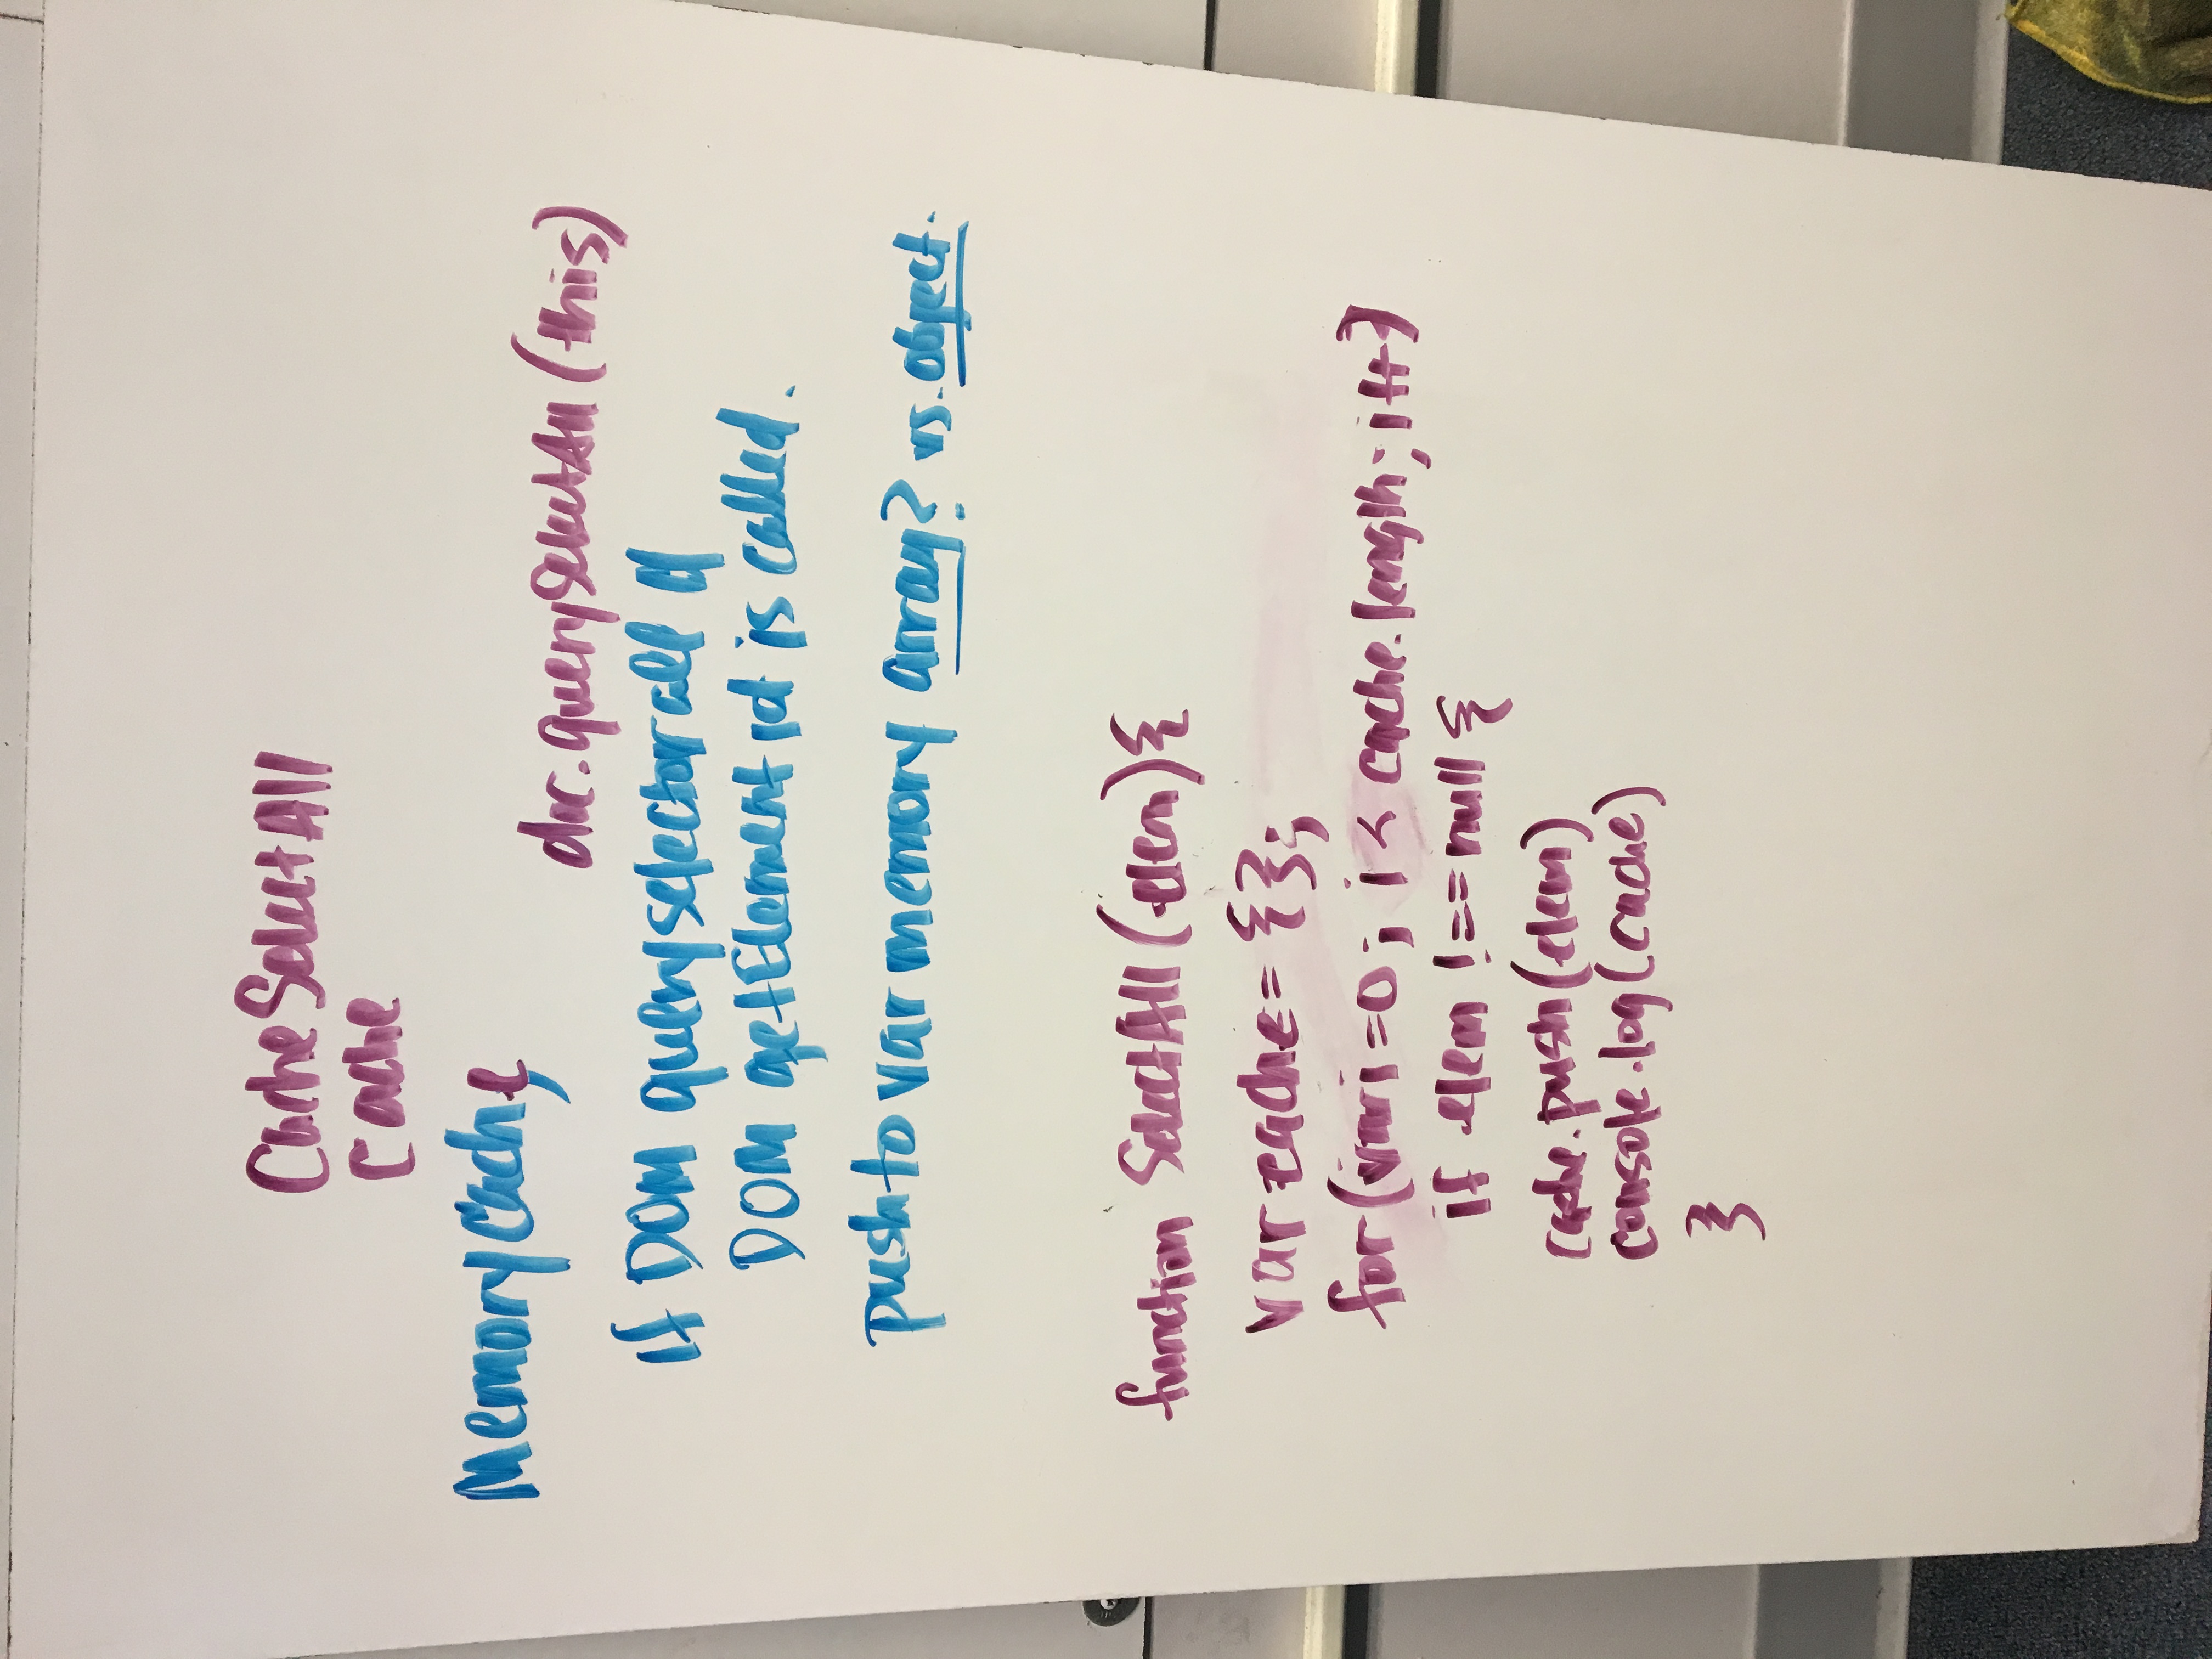 CacheSelectAll
Cache
MemoryCache,
doc.querySelectAll (this)
If DOM queryselector all
DOM getElement id is called.
push to var memory array? vs. object.
function SelectAll (elem) {
var cache = {};
for (var i = 0; i < cache.length; i++)
if elem !== null {
cache.push (elem)
console.log (cache)
}